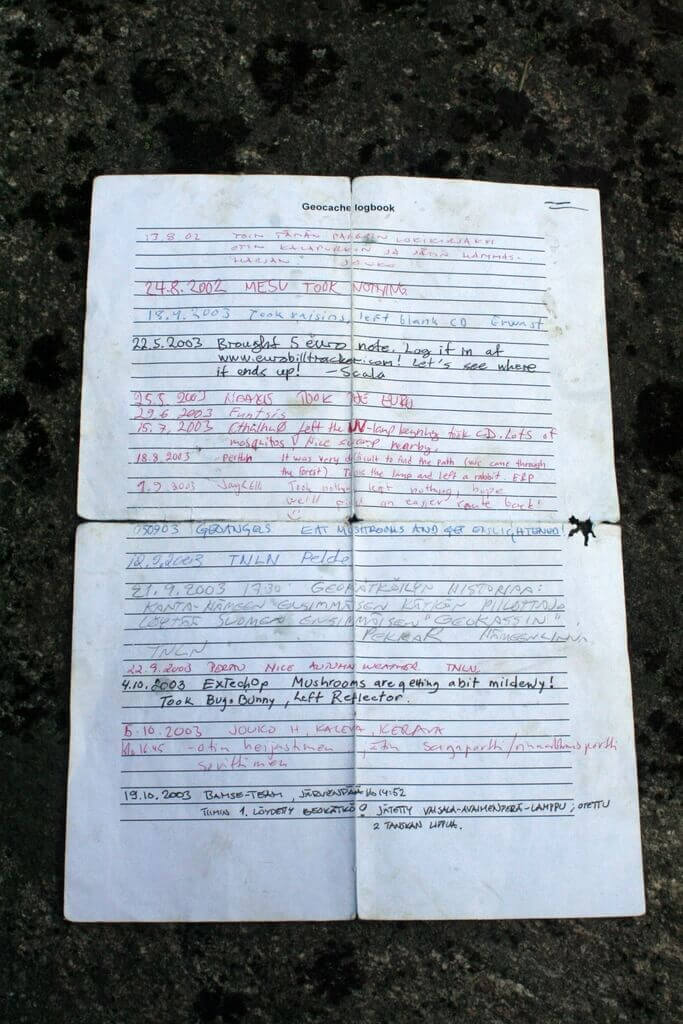 Geocache logbook
13.8.02 TOIN TÄMÄN PAREMMAN LOKIKIRJAKSI
OTIN KALAPURKIN JA JÄTIN HAMMAS-
HARJAN JOUKO
24.8.2002 MESU TOOK NOTHING
18.4.2003 Took raisins, left blank CD
22.5.2003 Brought 5 euro note. Log it in at
www.eurobilltracker.com! Let's see where
it ends up! -Scala
25.5.2003 TOOK THE EURO
29.6.2003 Funtsis
15.7.2003 Cthulhu Left the UV-lamp keyring took CD. Lots of
mosquitos Nice swamp nearby.
18.8.2003 It was very difficult to find the path (we came through
the forest) Took the lamp and left a rabbit.
1.9.2003 Took nothing left nothing, hope
we'll find an easier route back!
150903 GEOANGELS EAT MUSHROOMS AND GET ENLIGHTENED!
TNLN Pelde
21.9.2003 1730 GEOKÄTKÖILYN HISTORIAA:
KANTA-HÄMEEN ENSIMMÄISEN KÄTKÖN PIILOTTAJA
LÖYTÄÄ SUOMEN ENSIMMÄISEN "GEOKASSIN".
PEKKAR HÄMEENLINNA
TNLN
22.9.2003 PERAN NICE AUTUMN WEATHER TNLN
4.10.2003 ExTechOp Mushrooms are getting a bit mildewy!
Took Bugs Bunny, Left Reflector.
5.10.2003 JOUKO H, KALEVA, KERAVA
klo 16.45 -otin heijastimen, jätin
19.10.2003 BAMSE-TEAM, JÄRVENPÄÄ klo 14:52
TIIMIN 1. LÖYDETTY GEOKÄTKÖ! JÄTETTY VAISALA-AVAIMENPERÄ-LAMPPU; OTETTU
2 TANSKAN LIPPUA.